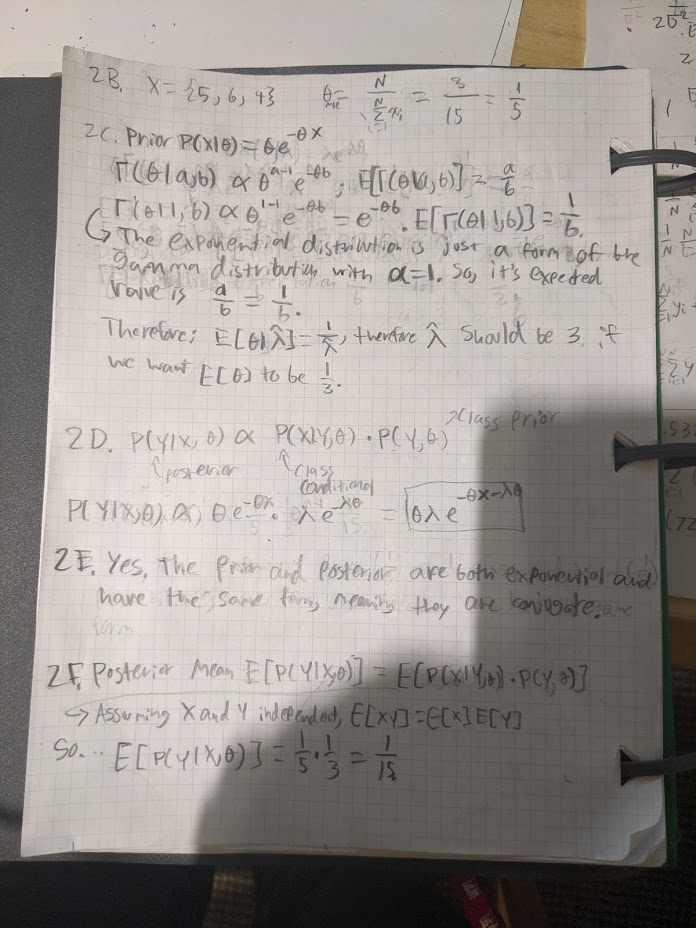 2B. X = {5, 6, 4} θ_MLE = N / Σ_{i=1}^{N} x_i = 3/15 = 1/5
2C. Prior P(X|θ) = θe^{-θx}
Γ(θ|a,b) ∝ θ^{a-1} e^{-θb}; E[Γ(θ|a,b)] = a/b
Γ(θ|1,b) ∝ θ^{1-1} e^{-θb} = e^{-θb}. E[Γ(θ|1,b)] = 1/b.
↳ The exponential distribution is just a form of the
gamma distribution with a=1. So, it's expected
value is a/b = 1/b.
Therefore; E[θ|λ̂] = 1/λ̂, therefore λ̂ should be 3 if
we want E[θ] to be 1/3.
2D. P(Y|X, θ) ∝ P(X|Y,θ) · P(Y,θ) → class prior
↑ posterior ↑ class
conditional
P(Y|X,θ) ∝ θe^{-θx} · λe^{-λθ} = θλe^{-θx-λθ}
2E. Yes, the prior and posterior are both exponential and
have the same form, meaning they are conjugate.
2F. Posterior Mean E[P(Y|X,θ)] = E[P(X|Y,θ) · P(Y,θ)]
↳ Assuming X and Y independent, E[XY] = E[X]E[Y]
So... E[P(Y|X,θ)] = 1/5 · 1/3 = 1/15